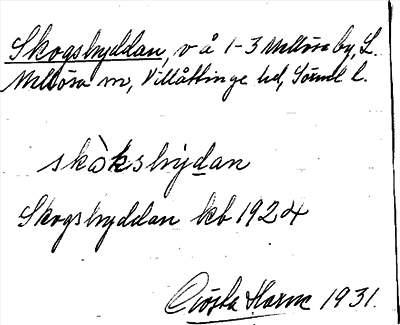 Skogshyddan, v å 1-3 Mellösa by, L.
Mellösa sn, Villåttinge hd, Sörml l.
skòkshỳdan
Skogshyddan kb 1924
Gösta Harne 1931.